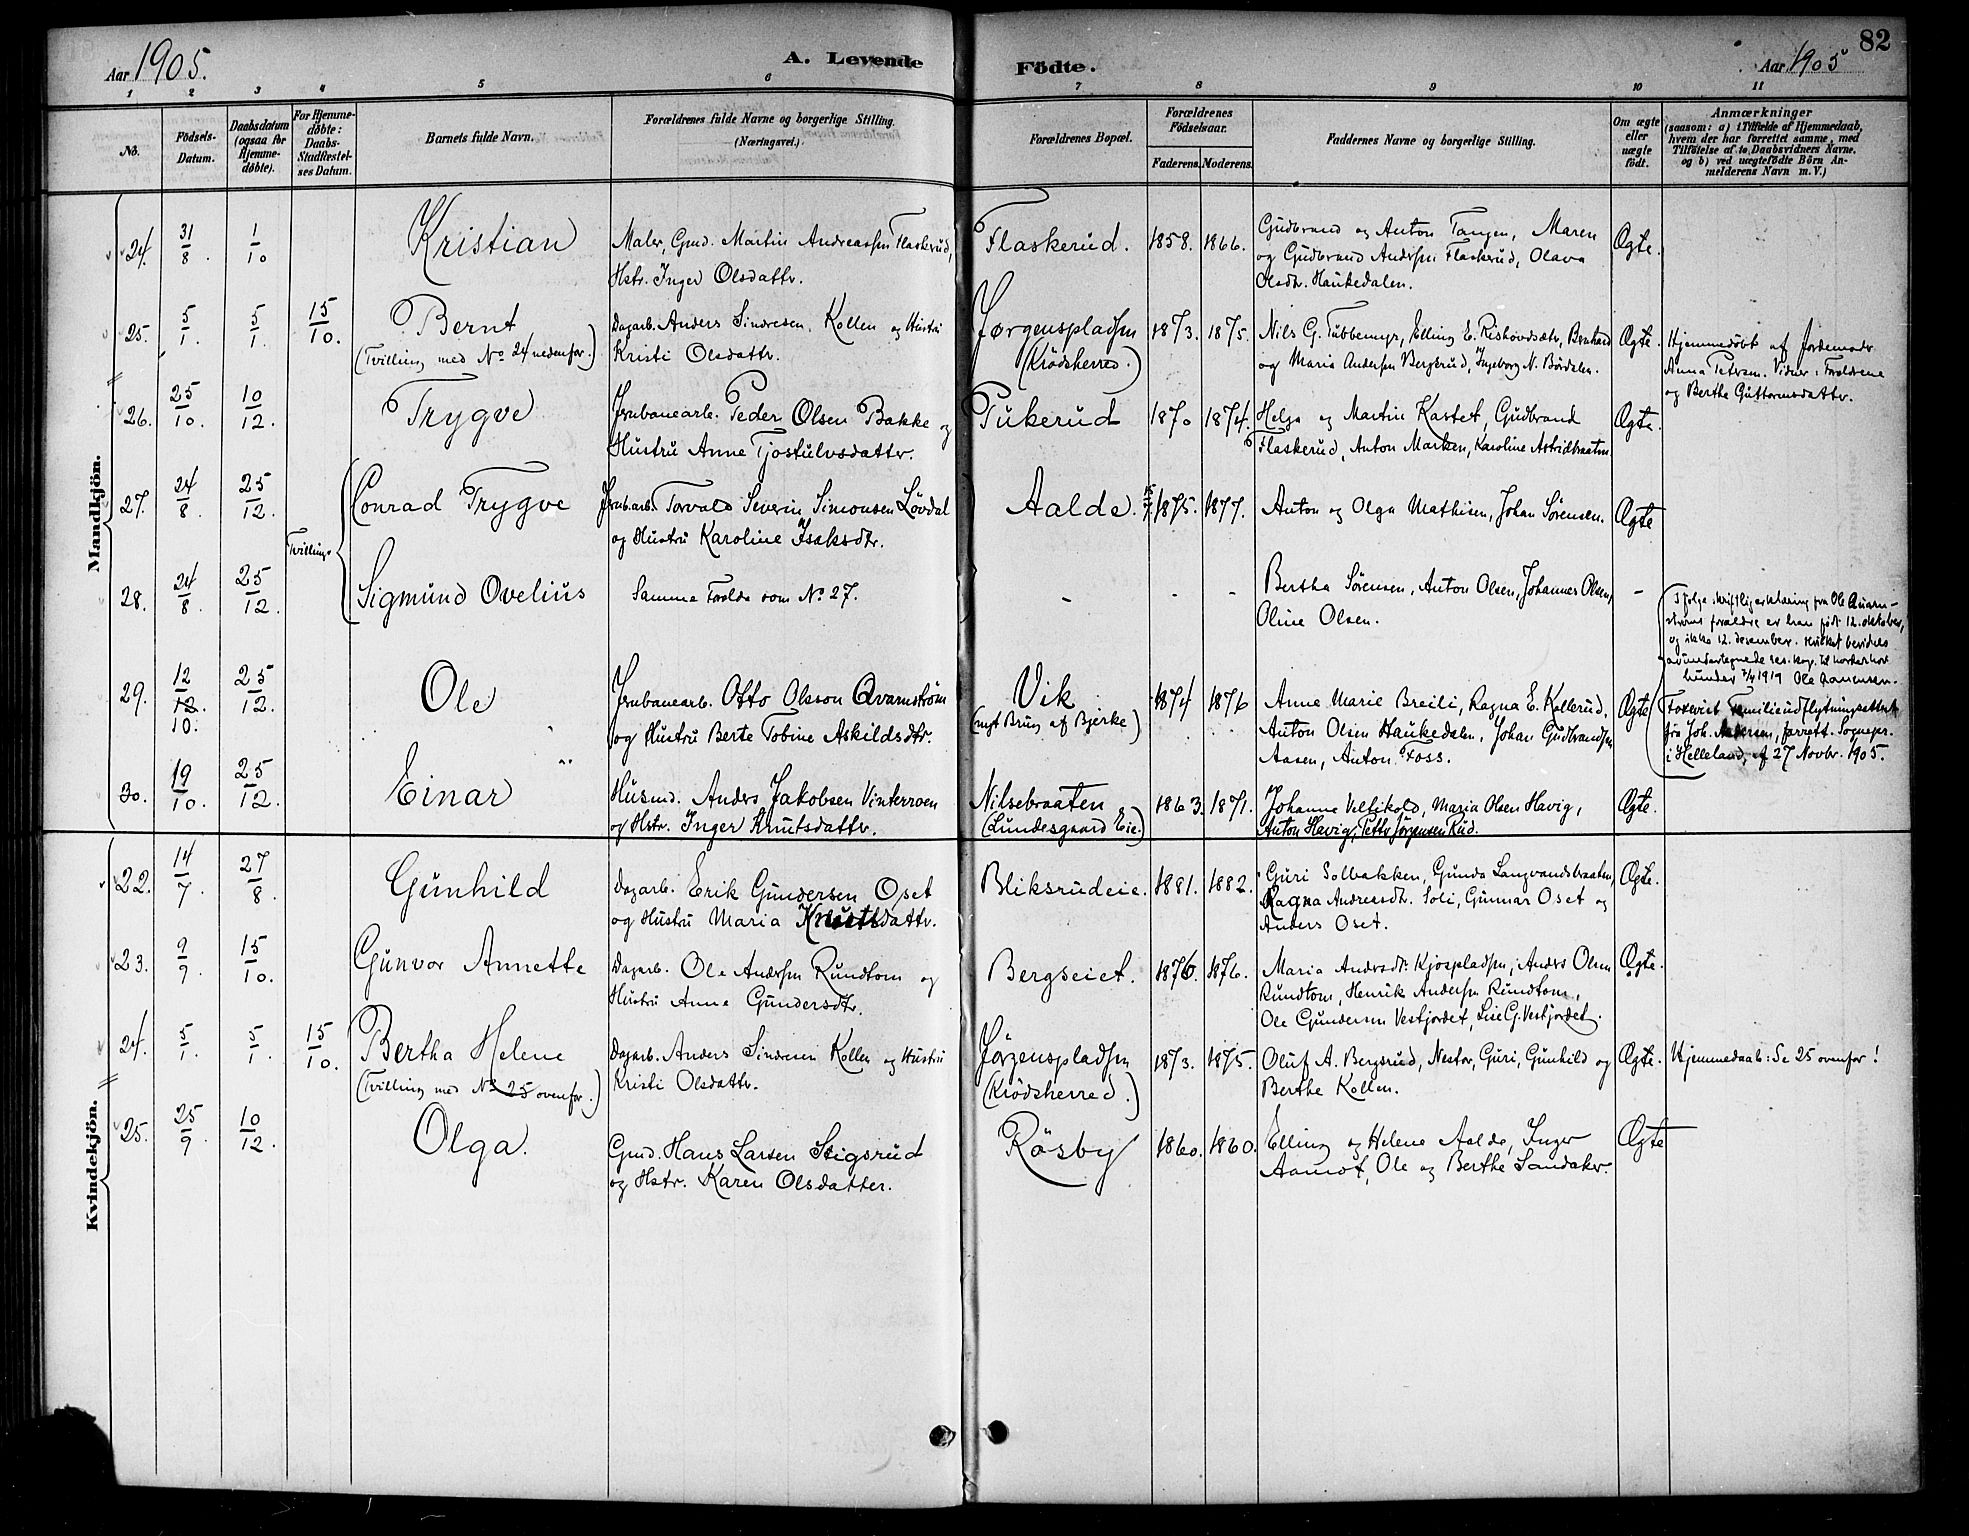 Aar 1905.
A. Levende Födte.
Aar 1905
82
1 2 3 4 5 6 7 8 9 10 11
No.
Födsels-Datum.
Daabsdatum (ogsaa for Hjemme-döbte).
For Hjemme-döbte: Daabs-Stadfæstel-ses Datum.
Barnets fulde Navn.
Forældrenes fulde Navne og borgerlige Stilling. (Næringsvei.)
Forældrenes Bopæl.
Forældrenes Födselsaar.
Faderens. Moderens.
Faddernes Navne og borgerlige Stilling.
Om ægte eller uægte født.
Anmærkninger
(saasom: a) i Tilfælde af Hjemmedaab,
hvem der har forrettet samme, med
Tilföielse af to Daabsvidners Navne.
og b) ved uægtefödte Börn An-
melderens Navn m. V.)
Mandkjön.
24. 31/8. 1/10 Kristian
Maler, Gmd. Martin Andreassen Flaskerud,
Hstr. Inger Olsdattr.
Flaskerud. 1858. 1866.
Gudbrand og Anton Tangen, Maren
og Gudbrand Andersen Flaskerud, Olava
Olsdtr. Haukedalen.
Ægte.
25. 5/1. 5/1. 15/10. Bernt
(Tvilling med No 24 nedenfor.)
Dagarb. Anders Sindresen Kollen og Hustru
Kristi Olsdattr.
Jørgenspladsen
(Krödsherred.)
1873. 1875.
Nils G. Tubbemyr, Elling E. Rishovdsætr, Bernhard
og Maria Andersen Bergsrud, Ingeborg N. Bördalen.
Ægte.
Hjemmedöbt af Jordemodr
Anna Petersen. Vidner: Forældrene
og Berthe Guttormsdattr.
26. 25/10. 10/12. Trygve
Jernbanearb. Peder Olsen Bakke og
Hustru Anne Tjostulvsdattr.
Tukerud 1870 1874.
Helga og Martin Kastet, Gudbrand
Flaskerud, Anton Marken, Karoline Astridbraaten
Ægte.
27. 24/8. 25/12. Tvillinge Conrad Trygve
Jernb.arb. Torvald Severin Simonsen Lövdal
og Hustru Karoline Isaksdtr.
Aalde. 1875. 1877.
Anton og Olga Mathisen, Johan Sörensen.
Ægte
28. 24/8. 25/12. Sigmund Ovelius
Samme Forældre som No 27.
- - -
Bertha Sörensen, Anton Olsen, Johannes Olsen,
Oline Olsen.
-
Ifölge skriftlig erklæring fra Ole Quarn-
ströms forældre er han født 12. oktober,
og ikke 12. desember. Hvilket bevidnes
av undertegnede res. kap. til Norderhov
Ole
29. 12/12. 10. 25/12. Ole
Jernbanearb. Otto Olsson Qvarnström
og Hustru Berte Tobine Askildsdtr.
Vik
(nyt Brug af Bjerke)
1874 1876
Anne Marie Breili, Ragna E. Kollerud,
Anton Olsen Haukedalen, Johan Gudbrandsen
Aasen, Anton Foss.
Ægte
Forevist Familieudflytningsattest
fra Joh. Andersen, forrett. Sognepr.
i Helleland, af 27 Novbr. 1905.
30. 19/10. 25/12. Einar
Husmd. Anders Jakobsen Vinterroen
og Hstr. Inger Knutsdattr.
Nilsebraaten
(Lundesgaard Eie.)
1863. 1871.
Johanne Vælikold, Maria Olsen Havig,
Anton Havig, Petter Jörgensen Rud.
Ægte.
Kvindekjön.
22. 14/7. 27/8. Gunhild
Dagarb. Erik Gundersen Oset
og Hustru Maria Knutsdattr.
Bliksrudeie. 1881. 1882.
Guri Solbakken, Gunda Langvandsbraaten,
Ragna Andreasdtr. Soli, Gunnar Oset og
Anders Oset.
Ægte.
23. 9/9. 15/10. Gunvor Annette
Dagarb. Ole Andersen Rundtom og
Hustru Anne Gundersdtr.
Bergseiet. 1876. 1876.
Maria Andersdtr. Kjospladsen, Anders Olsen
Rundtom, Henrik Andersen Rundtom,
Ole Gundersen Vestjordet, Lise G. Vestjordet.
Ægte.
24. 5/1. 5/1. 15/10. Bertha Helene
(Tvilling med No 25 ovenfor.)
Dagarb. Anders Sindresen Kollen og Hustru
Kristi Olsdattr.
Jörgenspladsen
(Krödsherred.)
1873. 1875.
Oluf A. Bergsrud, Nestor, Guri, Gunhild og
Berthe Kollen.
Ægte.
Hjemmedaab: Se 25 ovenfor!
25. 25/9. 10/12. Olga.
Gmd. Hans Larsen Stigsrud
og Hstr. Karen Olsdatter.
Rösby 1860. 1860.
Elling og Helene Aalde, Inger
Aamot, Ole og Berthe Sandaker.
Ægte